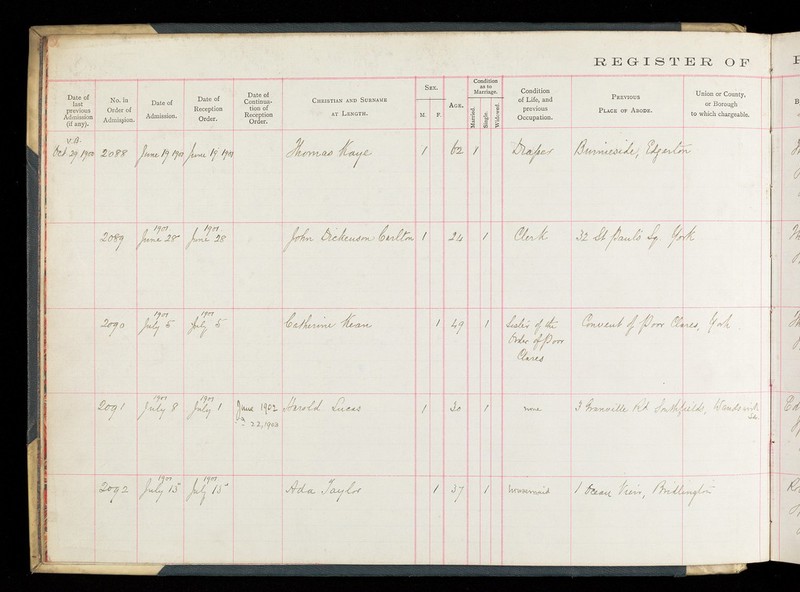 REGISTER OF
Date of last previous Admission (if any).
No. in Order of Admission.
Date of Admission.
Date of Reception Order.
Date of Continuation of Reception Order.
Christian and Surname at Length.
Sex.
M.
F.
Age.
Condition as to Marriage.
Married.
Single.
Widowed.
Condition of Life, and previous Occupation.
Previous Place of Abode.
Union or County, or Borough to which chargeable.
V.A.
Oct 29 1900 2088 June 19 1901 June 19 1901 Thomas Kaye 1 62 1 Draper Burnieside, Edgerton
1901 1901
2089 June 28 June 28 John Dickenson Carlton 1 24 1 Clerk 32 St Paul's Sq. York
1901 1901
2090 July 5 July 5 Catherine Kean 1 49 1 Sister of the Convent of Poor Clares, York
Order of Poor
Clares
1901 1901
2091 July 8 July 1 June 1902 Harold Lucas 1 30 1 none 3 Granville Rd Southfields, Wandsworth
22, 1903
1901 1901
2092 July 15 July 15 Ada Taylor 1 37 1 1 Ocean View, Bridlington